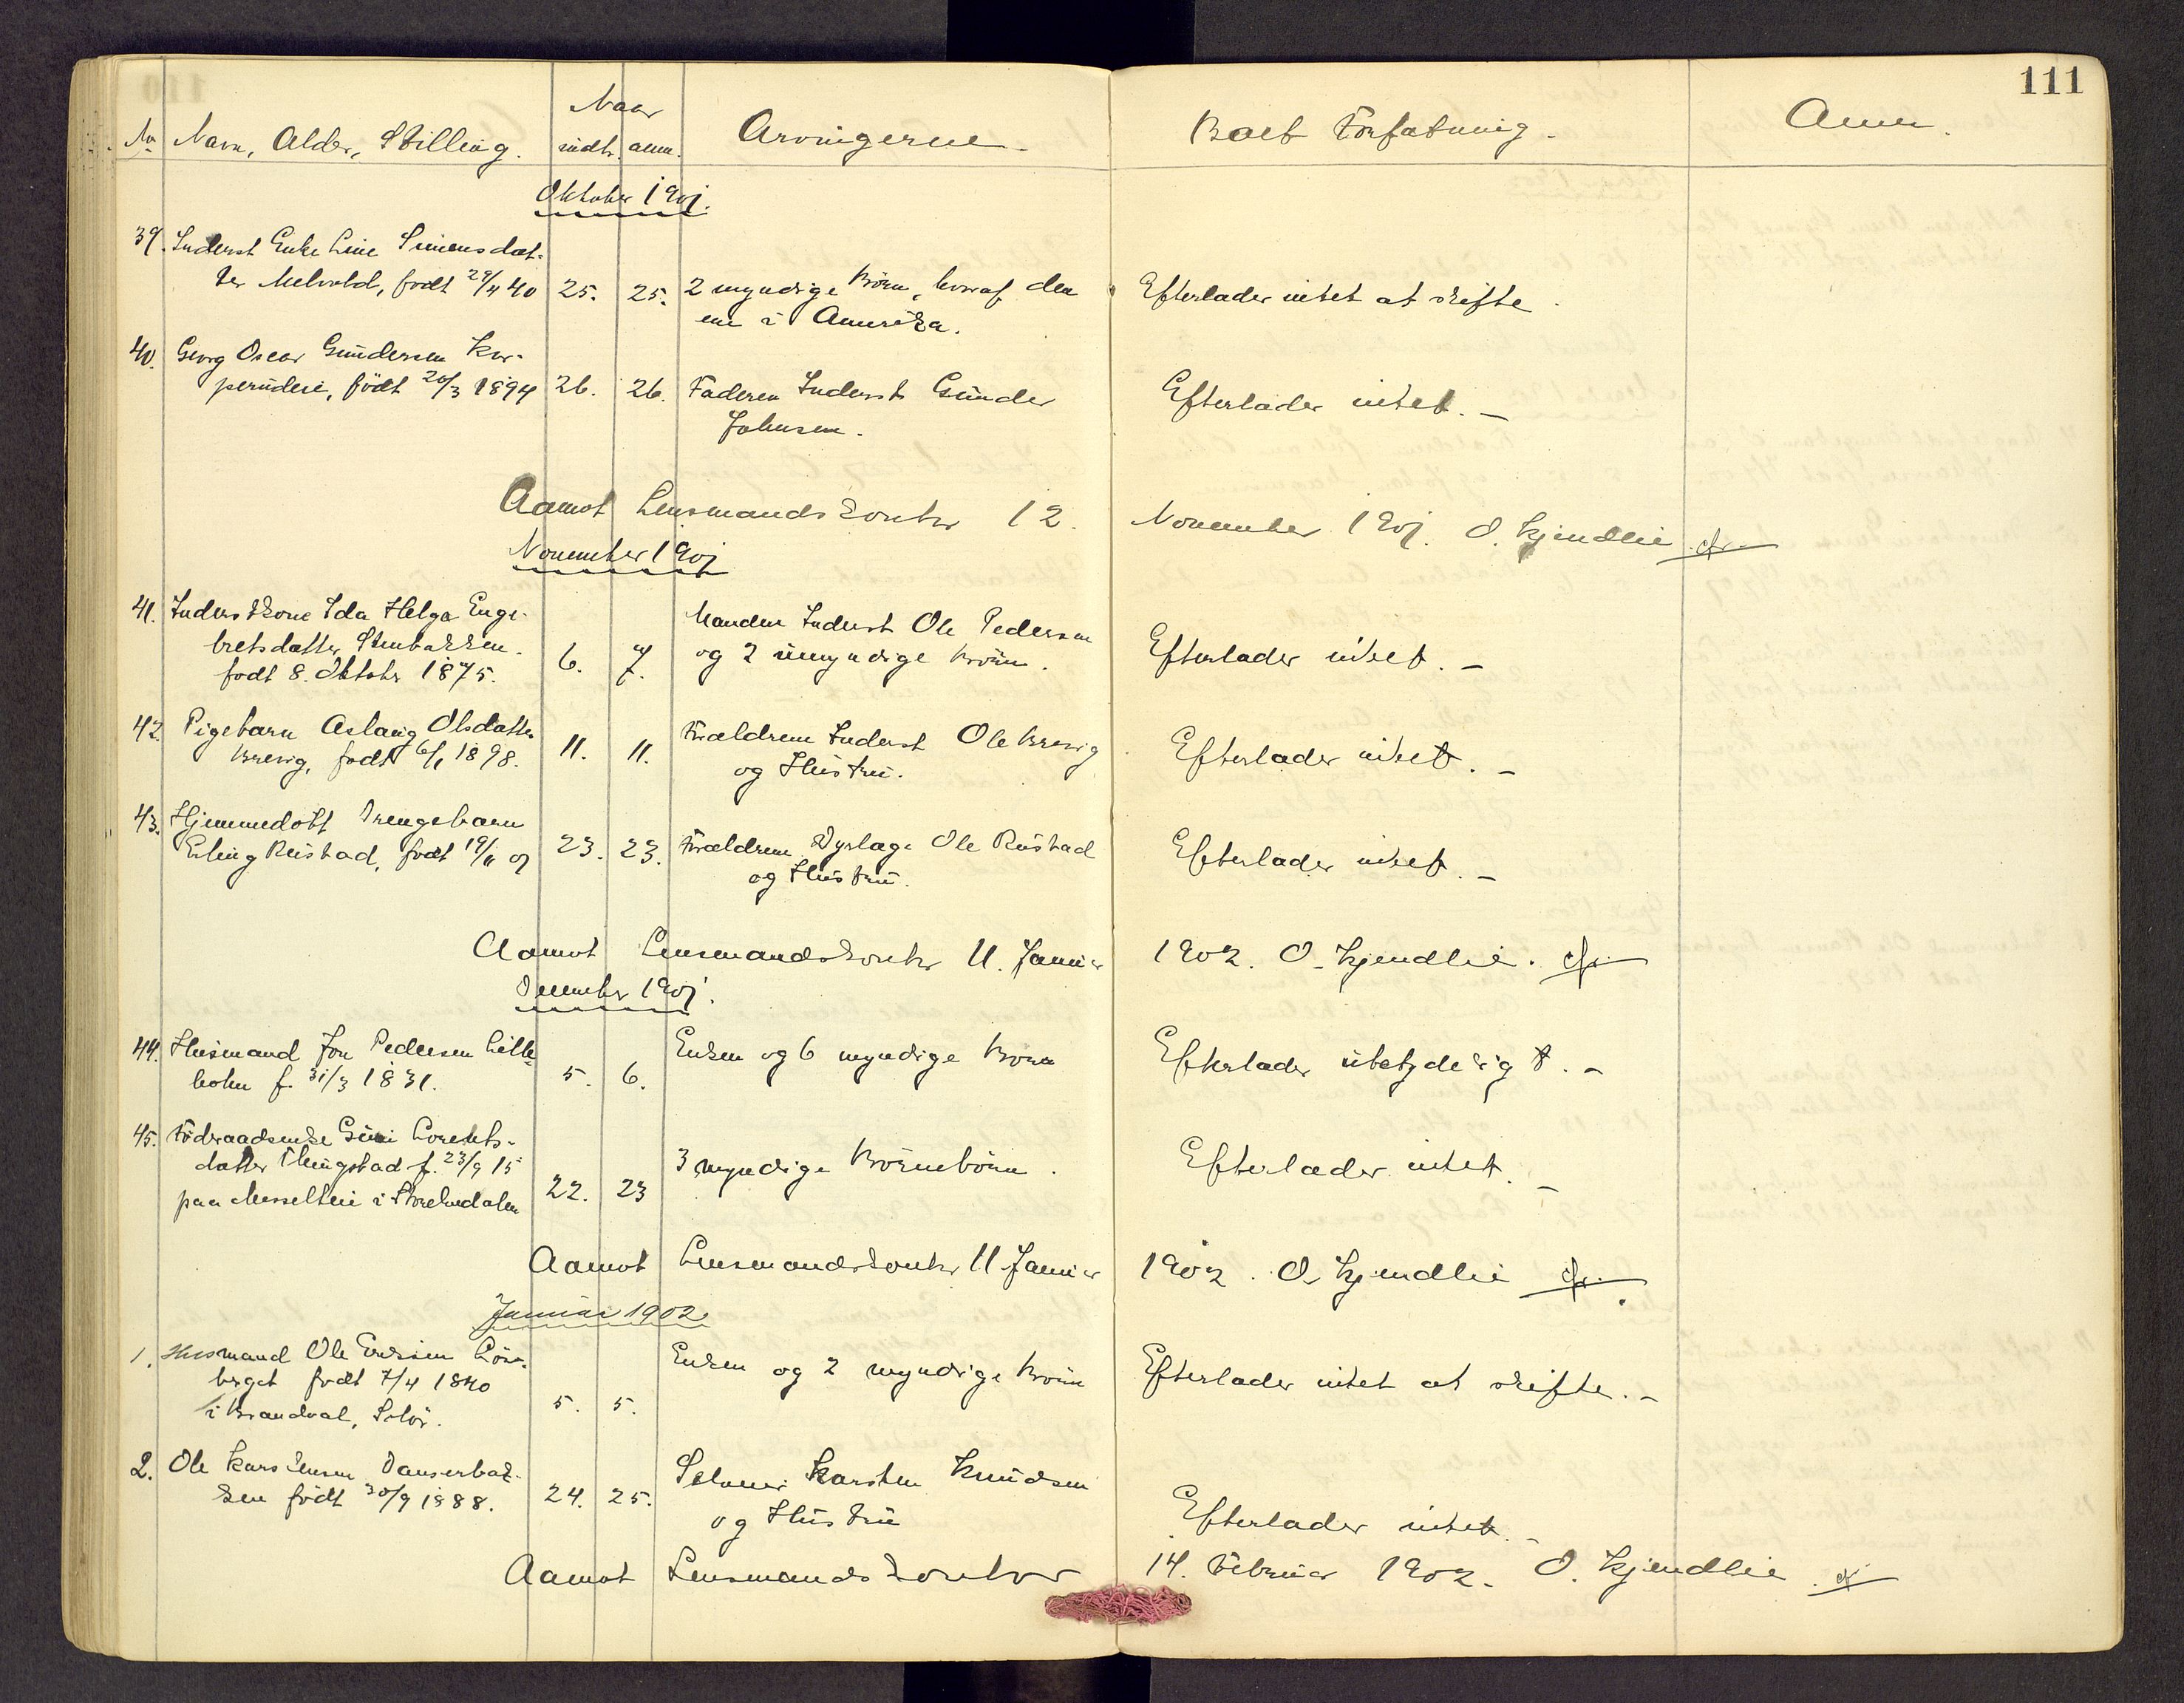 111
No Navn, Alder, Stilling. Naar indtr. anm. Arvingerne. Boets Forfatning. Anm.
Oktober 1901.
39. Inderst Enke Line Simensdat-
ter Melvold, født 29/4 40 25. 25. 2 myndige Børn, hvoraf den Efterlader intet at skifte.
ene i Amerika.
40. Georg Oscar Gundersen Kor-
perudei, født 20/3 1894 26. 26. Faderen Inderst Gunder Efterlader intet. -
Johnsen.
Aamot Lensmandskontor 12. November 1901. O. Kjendlie
November 1901
41. Inderstkone Ida Helga Enge- Manden Inderst Ole Pedersen
bretsdatter Stenbakken. 6. 7. og 2 umyndige Børn. Efterlader intet. -
født 8. Oktobr 1875.
42. Pigebarn Aslaug Olsdatter Forældrene Inderst Ole Brevig
Brevig, født 6/1 1898. 11. 11. og Hustru. Efterlader intet. -
43. Hjemmedøbt Drengebarn
Erling Rustad, født 19/11 01 23. 23. Forældrene Dyrlæge Ole Rustad Efterlader intet. -
og Hustru.
Aamot Lensmandskontor 11. Januar 1902. O. Kjendlie.
December 1901.
44. Husmand Jon Pedersen Lille- Enken og 6 myndige Børn Efterlader ubetydeligt. -
holm f. 31/3 1831. 5. 6.
45. Födraadsenke Guri Lorents-
datter Thingstad f. 23/9 15 3 myndige Børnebørn. Efterlader intet. -
paa Messeltlie i Storelvdalen 22. 23
Aamot Lensmandskontor 11 Januar 1902. O. Kjendlie
Januar 1902
1. Husmand Ole Eriksen Lös- Enken og 2 myndige Børn Efterlader intet at skifte. -
berget født 7/4 1840
i Brandval, Solør. 5. 5.
2. Ole Karstensen Danserbak- Selveier Karsten Knudsen
ken født 30/9 1888. 24. 25. og Hustru Efterlader intet. -
Aamot Lensmandskontor 14. Februar 1902. O. Kjendlie